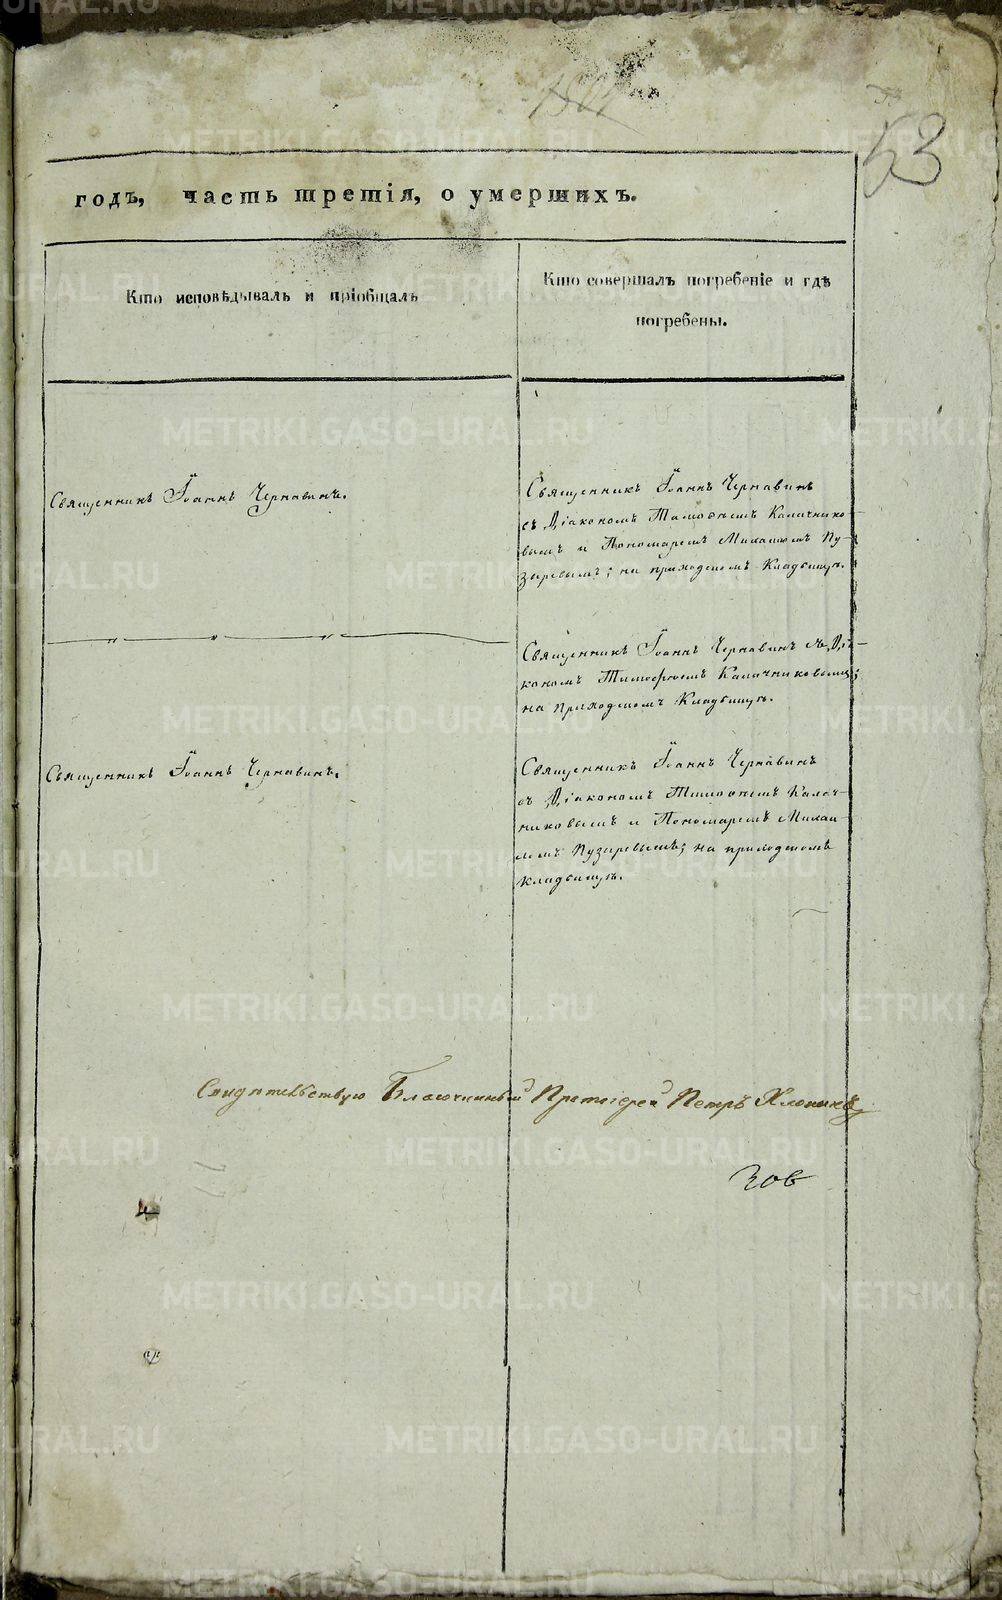 53
годъ, часть третія, о умершихъ.
Кто исповѣдывалъ и пріобщалъ
Кто совершалъ погребеніе и гдѣ
погребены.
Священникъ Іоаннъ Чернавинъ.
Священникъ Іоаннъ Чернавинъ
съ Діакономъ Тимоѳеемъ Калачнико-
вымъ и Пономаремъ Михаиломъ Пу-
заревымъ; на приходскомъ Кладбищѣ.
Священникъ Іоаннъ Чернавинъ съ Діа-
кономъ Тимофеемъ Калачниковымъ;
на Приходскомъ Кладбищѣ.
Священникъ Іоаннъ Чернавинъ.
Священникъ Іоаннъ Чернавинъ
съ Діакономъ Тимоѳеемъ Калач-
никовымъ и Пономаремъ Михаи-
ломъ Пузаревымъ; на приходскомъ
Кладбищѣ.
Свидѣтельствую Благочинный Протоіерей Петръ Хлопинъ
METRIKI.GASO-URAL.RU